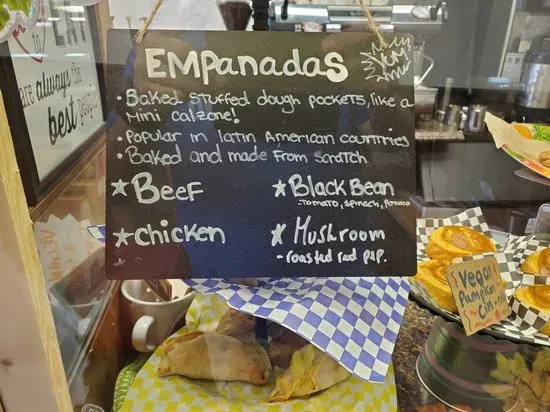 EMPanadas
YUM
• Baked stuffed dough pockets, like a
Mini calzone!
• Popular in Latin American countries
• Baked and made from scratch
★ Beef
★ Black Bean
- Tomato, spinach, potato
★ Chicken
★ Mushroom
- roasted red pep.
EAT
to
are always the
best people
Vegan
Pumpkin